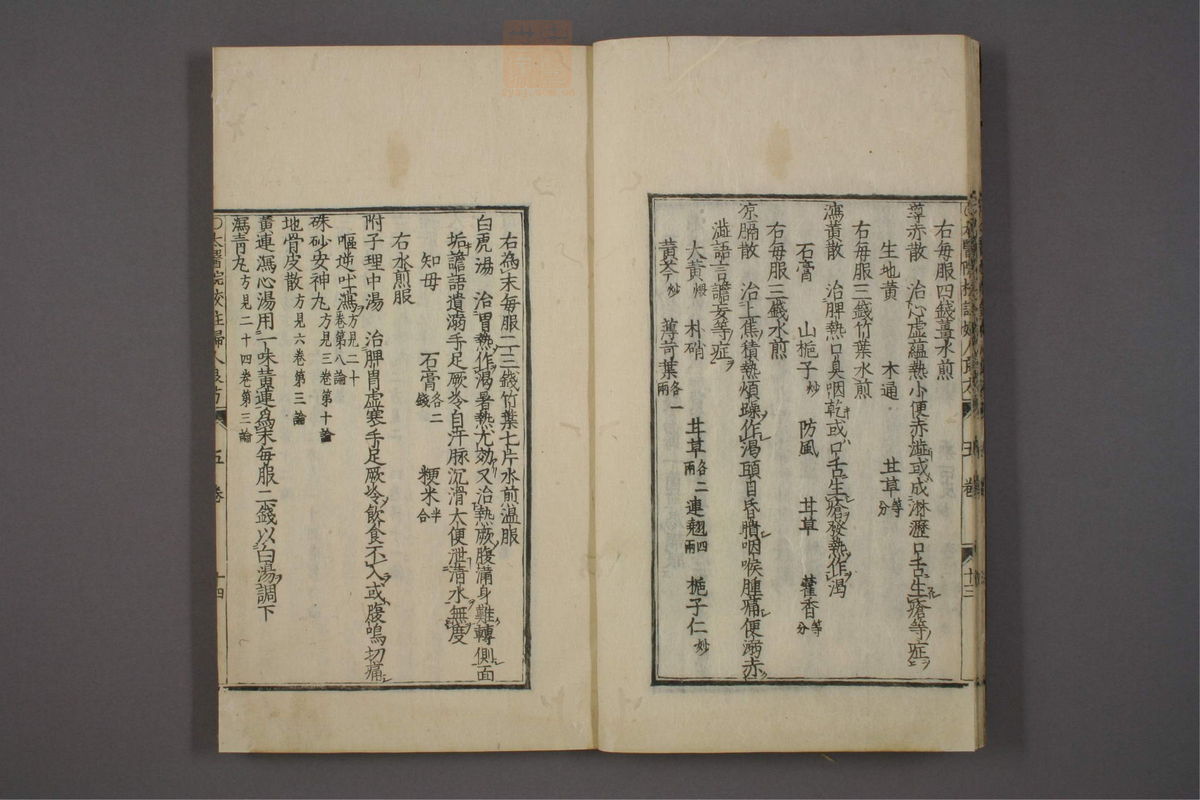 右每服四錢薑水煎
導赤散 治心虛蘊熱小便赤澁或成淋瀝口舌生瘡等症
生地黃 木通 甘草等分
右每服三錢竹葉水煎
瀉黃散 治脾熱口臭咽乾或口舌生瘡發熱作渴
石膏 山梔子炒 防風 甘草 藿香等分
右每服三錢水煎
凉膈散 治上焦積熱煩躁作渴頭目昏膭咽喉腫痛便溺赤
澁語言譫妄等症
大黃煨 朴硝 甘草各二兩 連翹四兩 梔子仁炒
黃芩炒 薄苛葉各一兩
五卷 十三
右為末每服二三錢竹葉七片水煎温服
白虎湯 治胃熱作渴暑熱尤効又治熱厥腹滿身難轉側面
垢譫語遺溺手足厥冷自汗脉沉滑大便泄清水無度
知母 石膏各二錢 粳米半合
右水煎服
附子理中湯 治脾胃虛寒手足厥冷飲食不入或腹鳴切痛
嘔逆吐瀉方見二十卷第八論
硃砂安神丸方見三卷第十論
地骨皮散方見六卷第三論
黃連瀉心湯用一味黃連為末每服二錢以白湯調下
瀉青丸方見二十四卷第三論
○太醫院校註婦人良方 五卷 十四